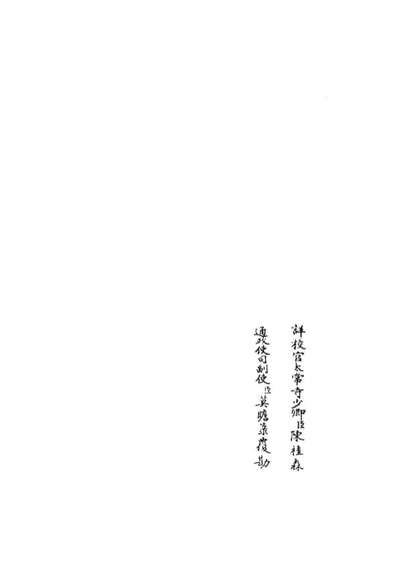 詳校官太常寺少卿臣陳桂森
通政使司副使臣莫瞻菉覆勘